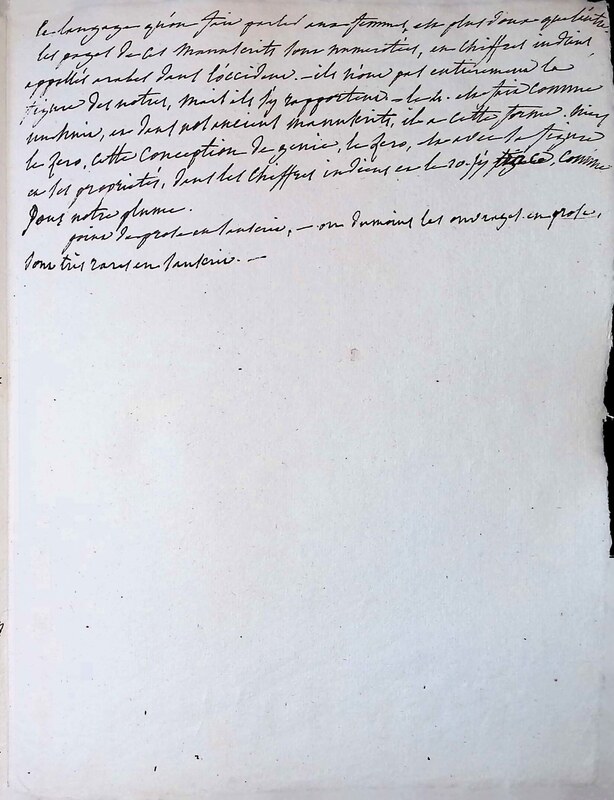 le langage qu'on fait parler aux femmes, est plus doux que l'autre
les pages de ces manuscrits sont numerotées, en chiffres indiens
appellés arabes dans l'occident. — ils n'ont pas entierement la
figure des notres, mais ils s'y rapportent. — le est fait comme
et dans nos anciens manuscrits, il a cette forme.
le zero, cette conception de genie, le zero, est avec sa figure
et ses propriétés, dans les chiffres indiens et le 10 s'y comme
sous notre plume.
point de prose en sanscrit, — ou du moins les ouvrages en prose,
sont très rares en sanscrit. —